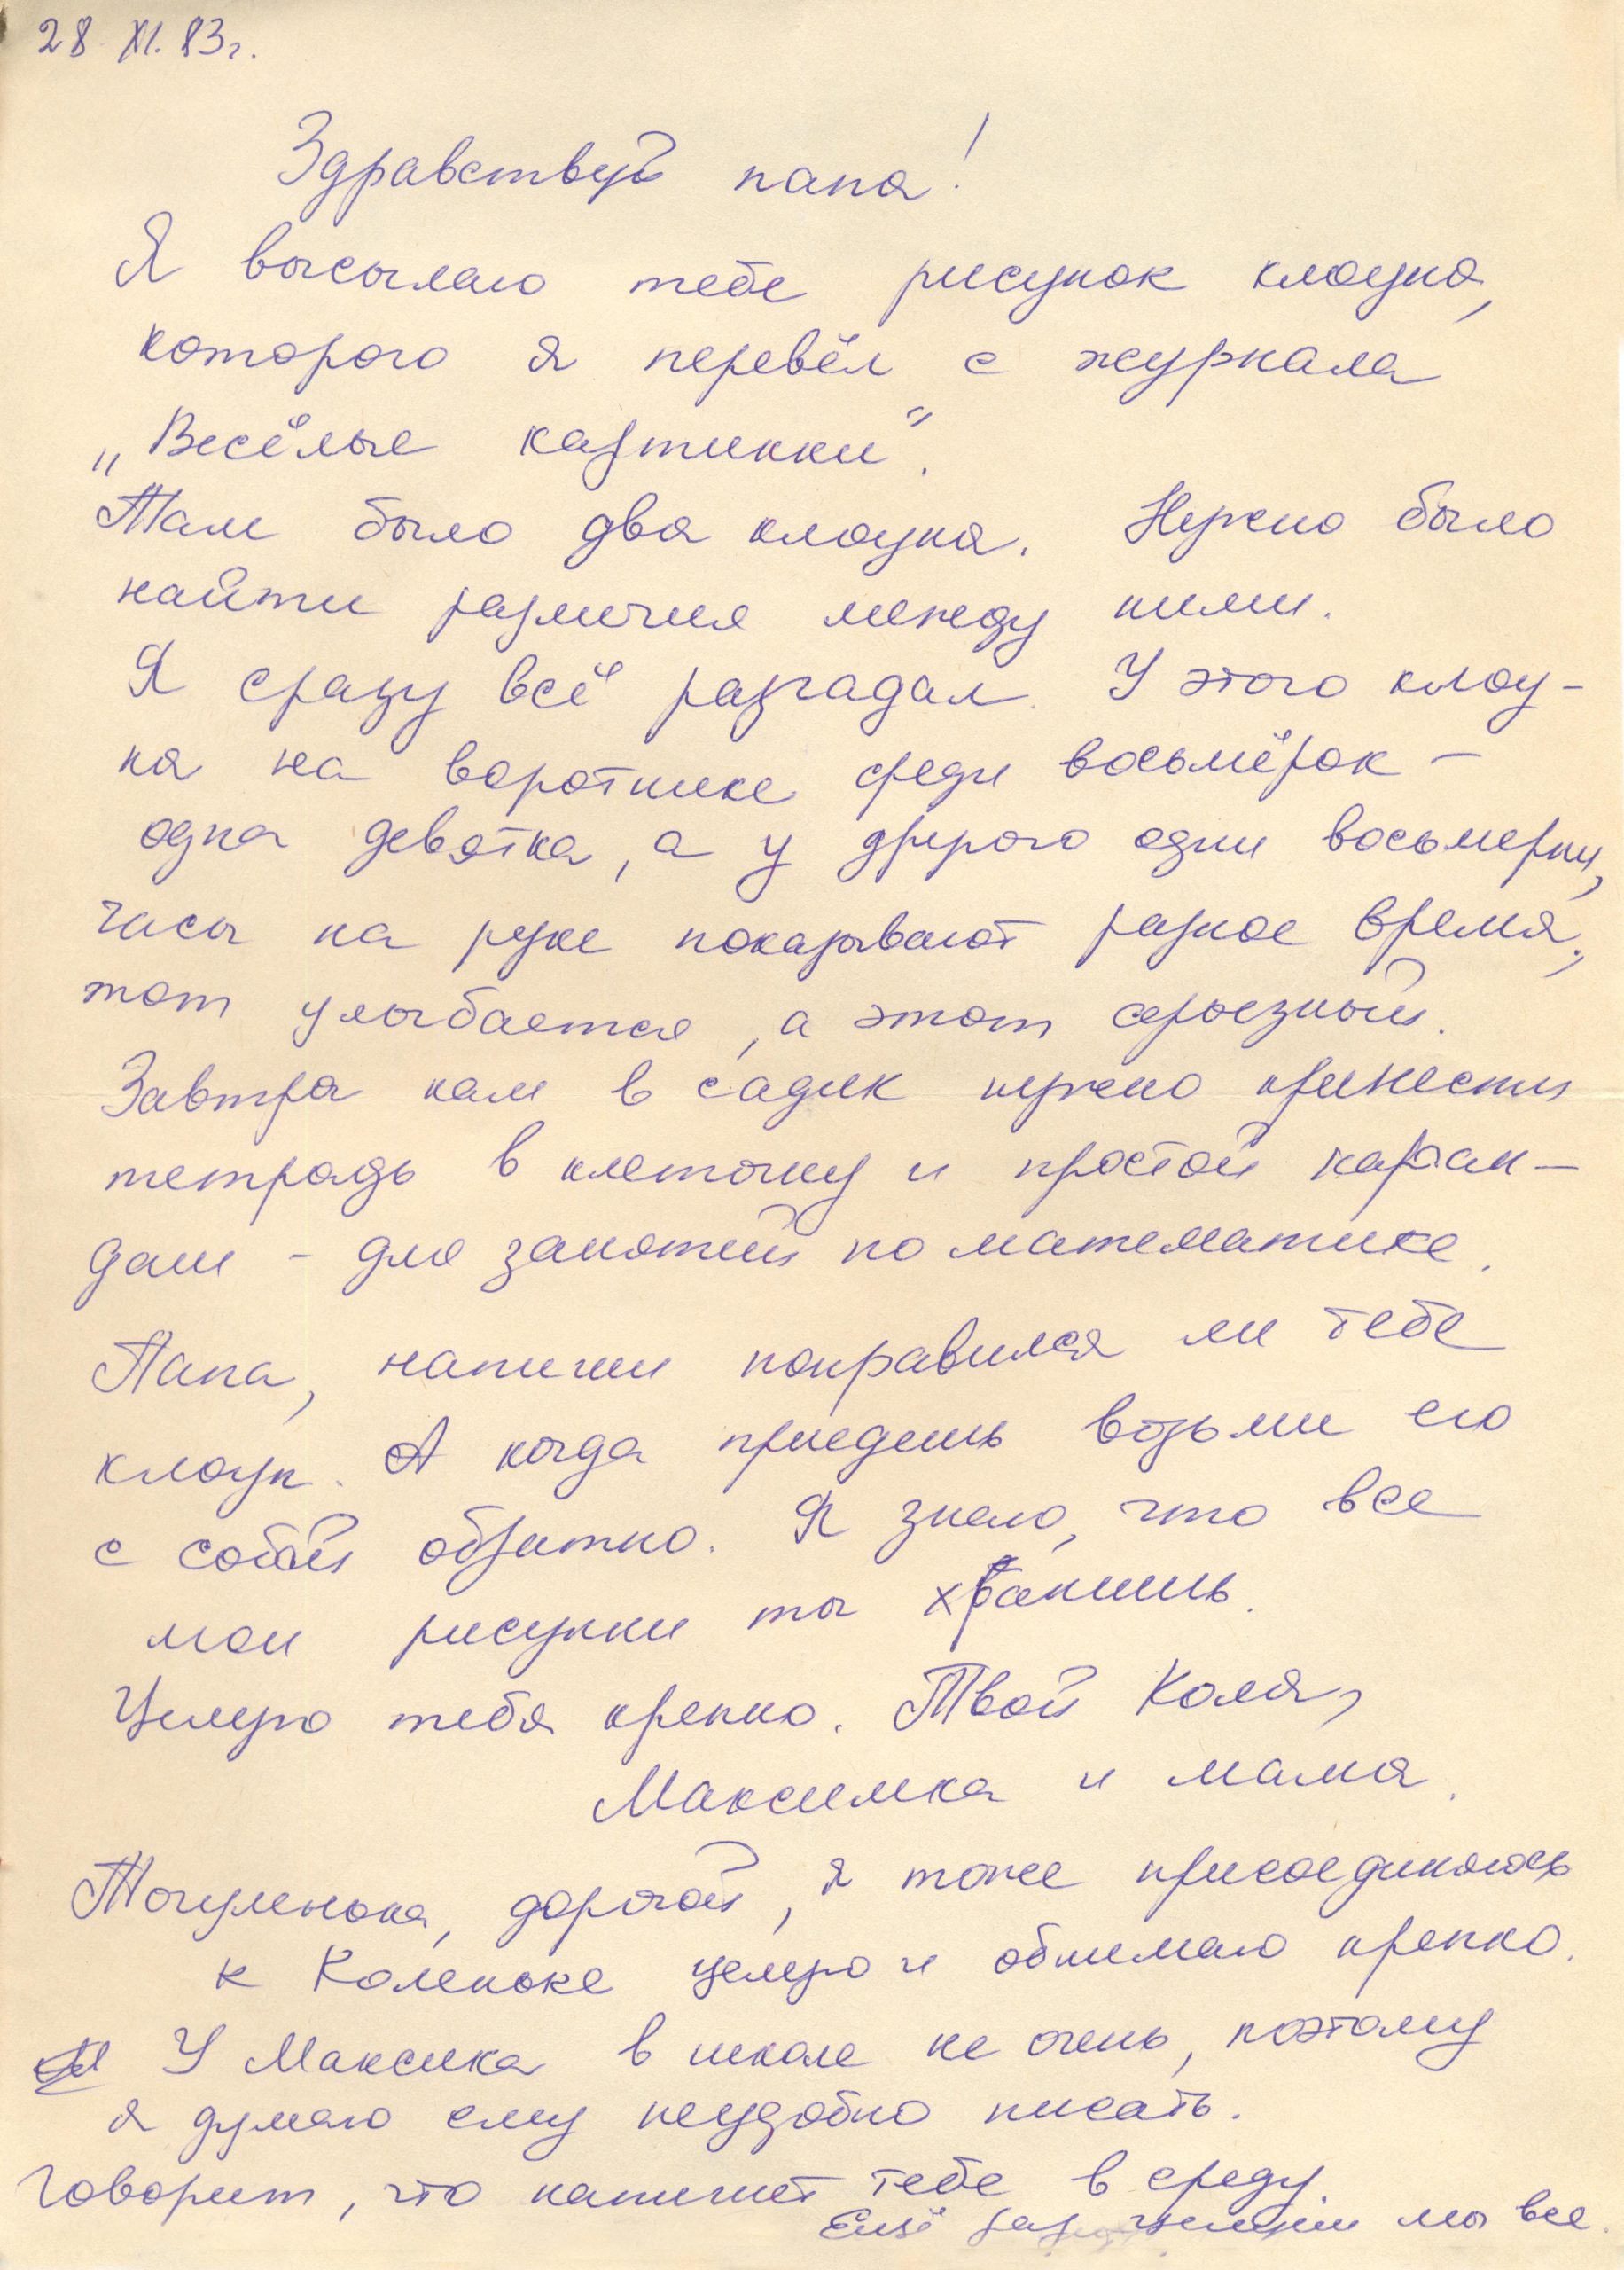 28 XI. 83г.
Здравствуй папа!
Я высылаю тебе рисунок клоуна,
которого я перевёл с журнала
„Весёлые картинки".
Там было два клоуна. Нужно было
найти различия между ними.
Я сразу всё разгадал. У этого клоу-
на на воротнике среди восьмёрок -
одна девятка, а у другого одни восьмерки,
часы на руке показывают разное время,
тот улыбается, а этот серьезный.
Завтра нам в садик нужно принести
тетрадь в клеточку и простой каран-
даш - для занятий по математике.
Папа, напиши понравился ли тебе
клоун. А когда приедешь возьми его
с собой обратно. Я знаю, что все
мои рисунки ты хранишь.
Целую тебя крепко. Твой Коля,
Максимка и мама.
дорогой, я тоже присоединяюсь
к Коленьке целую и обнимаю крепко.
У Максика в школе не очень, поэтому
я думаю ему неудобно писать.
Говорит, что напишет тебе в среду.
Ещё раз целуем мы все.